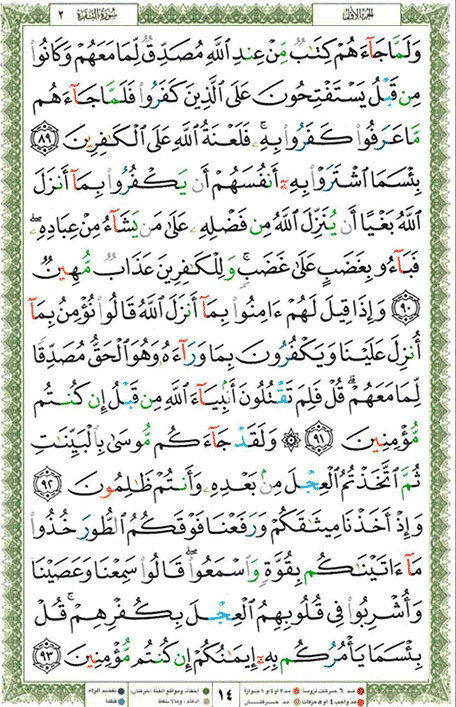 الجزء الأول
سورة البقرة ٢
وَلَمَّا جَآءَهُمْ كِتَٰبٌ مِّنْ عِندِ ٱللَّهِ مُصَدِّقٌ لِّمَا مَعَهُمْ وَكَانُوا۟
مِن قَبْلُ يَسْتَفْتِحُونَ عَلَى ٱلَّذِينَ كَفَرُوا۟ فَلَمَّا جَآءَهُم
مَّا عَرَفُوا۟ كَفَرُوا۟ بِهِۦ ۚ فَلَعْنَةُ ٱللَّهِ عَلَى ٱلْكَٰفِرِينَ ٨٩
بِئْسَمَا ٱشْتَرَوْا۟ بِهِۦٓ أَنفُسَهُمْ أَن يَكْفُرُوا۟ بِمَآ أَنزَلَ
ٱللَّهُ بَغْيًا أَن يُنَزِّلَ ٱللَّهُ مِن فَضْلِهِۦ عَلَىٰ مَن يَشَآءُ مِنْ عِبَادِهِۦ ۖ
فَبَآءُو بِغَضَبٍ عَلَىٰ غَضَبٍ ۚ وَلِلْكَٰفِرِينَ عَذَابٌ مُّهِينٌ
٩٠ وَإِذَا قِيلَ لَهُمْ ءَامِنُوا۟ بِمَآ أَنزَلَ ٱللَّهُ قَالُوا۟ نُؤْمِنُ بِمَآ
أُنزِلَ عَلَيْنَا وَيَكْفُرُونَ بِمَا وَرَآءَهُۥ وَهُوَ ٱلْحَقُّ مُصَدِّقًا
لِّمَا مَعَهُمْ ۗ قُلْ فَلِمَ تَقْتُلُونَ أَنۢبِيَآءَ ٱللَّهِ مِن قَبْلُ إِن كُنتُم
مُّؤْمِنِينَ ٩١ ۞ وَلَقَدْ جَآءَكُم مُّوسَىٰ بِٱلْبَيِّنَٰتِ
ثُمَّ ٱتَّخَذْتُمُ ٱلْعِجْلَ مِنۢ بَعْدِهِۦ وَأَنتُمْ ظَٰلِمُونَ ٩٢
وَإِذْ أَخَذْنَا مِيثَٰقَكُمْ وَرَفَعْنَا فَوْقَكُمُ ٱلطُّورَ خُذُوا۟
مَآ ءَاتَيْنَٰكُم بِقُوَّةٍ وَٱسْمَعُوا۟ ۖ قَالُوا۟ سَمِعْنَا وَعَصَيْنَا
وَأُشْرِبُوا۟ فِى قُلُوبِهِمُ ٱلْعِجْلَ بِكُفْرِهِمْ ۚ قُلْ
بِئْسَمَا يَأْمُرُكُم بِهِۦٓ إِيمَٰنُكُمْ إِن كُنتُم مُّؤْمِنِينَ ٩٣
مد ٦ حركات لزوماً مد ٢ او ٤ او ٦ جوازاً
مد واجب ٤ او ٥ حركات مد حركتان
١٤
إخفاء، ومواقع الغنة (حركتان) تفخيم الراء
ادغام، وما لا يلفظ قلقلة